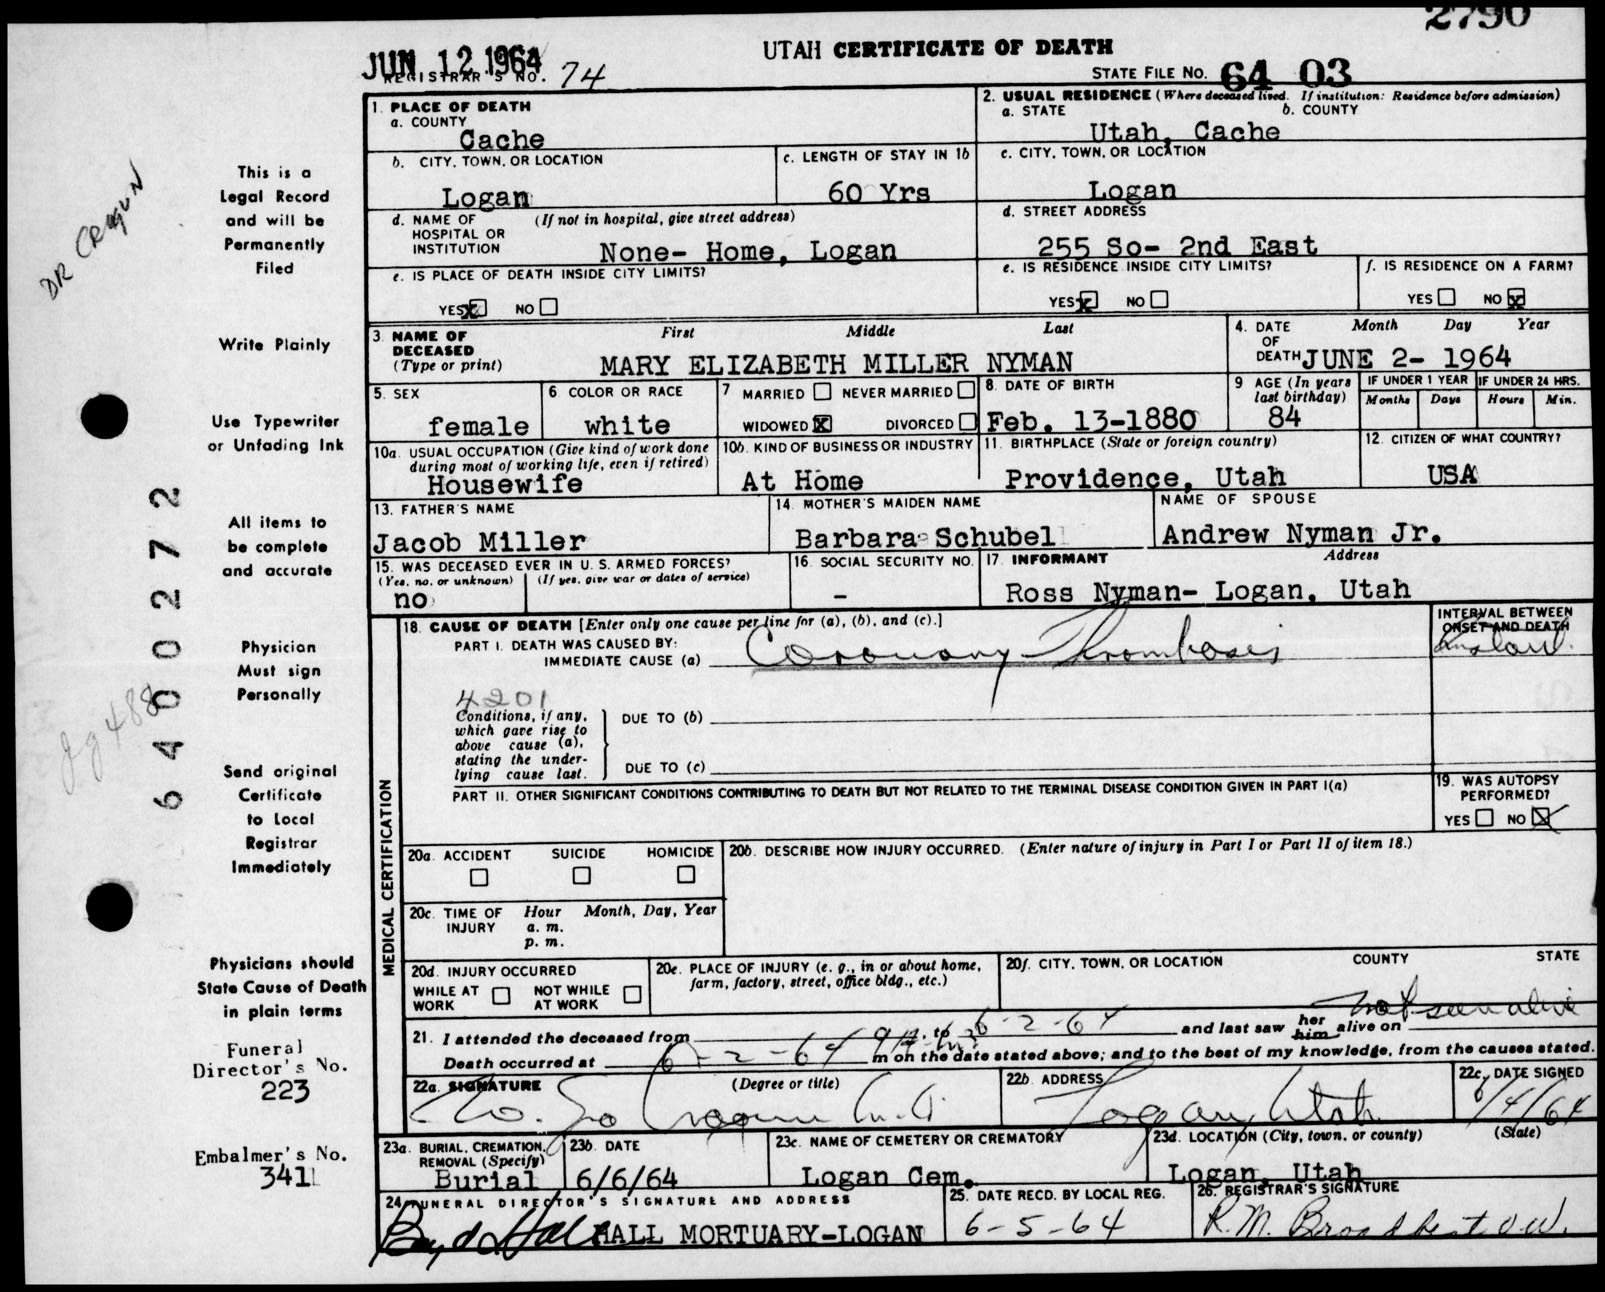 2790
JUN 12 1964
UTAH CERTIFICATE OF DEATH
REGISTRAR'S NO. 74
STATE FILE NO. 64 03
1. PLACE OF DEATH
a. COUNTY
Cache
2. USUAL RESIDENCE (Where deceased lived. If institution: Residence before admission)
a. STATE b. COUNTY
Utah, Cache
b. CITY, TOWN, OR LOCATION
Logan
c. LENGTH OF STAY IN 1b
60 Yrs
c. CITY, TOWN, OR LOCATION
Logan
d. NAME OF HOSPITAL OR INSTITUTION (If not in hospital, give street address)
None- Home, Logan
d. STREET ADDRESS
255 So- 2nd East
e. IS PLACE OF DEATH INSIDE CITY LIMITS?
YES x NO
e. IS RESIDENCE INSIDE CITY LIMITS?
YES x NO
f. IS RESIDENCE ON A FARM?
YES NO x
3. NAME OF DECEASED (Type or print)
First Middle Last
MARY ELIZABETH MILLER NYMAN
4. DATE OF DEATH Month Day Year
JUNE 2- 1964
5. SEX
female
6 COLOR OR RACE
white
7 MARRIED NEVER MARRIED
WIDOWED X DIVORCED
8. DATE OF BIRTH
Feb. 13-1880
9 AGE (In years last birthday)
84
IF UNDER 1 YEAR
Months Days
IF UNDER 24 HRS.
Hours Min.
10a. USUAL OCCUPATION (Give kind of work done during most of working life, even if retired)
Housewife
10b. KIND OF BUSINESS OR INDUSTRY
At Home
11. BIRTHPLACE (State or foreign country)
Providence, Utah
12. CITIZEN OF WHAT COUNTRY?
USA
13. FATHER'S NAME
Jacob Miller
14. MOTHER'S MAIDEN NAME
Barbara Schubel
NAME OF SPOUSE
Andrew Nyman Jr.
15. WAS DECEASED EVER IN U.S. ARMED FORCES?
(Yes, no, or unknown) (If yes, give war or dates of service)
no
16. SOCIAL SECURITY NO.
-
17. INFORMANT Address
Ross Nyman- Logan, Utah
MEDICAL CERTIFICATION
18. CAUSE OF DEATH [Enter only one cause per line for (a), (b), and (c).]
PART I. DEATH WAS CAUSED BY:
IMMEDIATE CAUSE (a) Coronary Thrombosis
INTERVAL BETWEEN ONSET AND DEATH
4201
Conditions, if any, which gave rise to above cause (a), stating the underlying cause last.
DUE TO (b)
DUE TO (c)
PART II. OTHER SIGNIFICANT CONDITIONS CONTRIBUTING TO DEATH BUT NOT RELATED TO THE TERMINAL DISEASE CONDITION GIVEN IN PART I(a)
19. WAS AUTOPSY PERFORMED?
YES NO X
20a. ACCIDENT SUICIDE HOMICIDE
20b. DESCRIBE HOW INJURY OCCURRED. (Enter nature of injury in Part I or Part II of item 18.)
20c. TIME OF INJURY
Hour Month, Day, Year
a. m.
p. m.
20d. INJURY OCCURRED
WHILE AT WORK NOT WHILE AT WORK
20e. PLACE OF INJURY (e. g., in or about home, farm, factory, street, office bldg., etc.)
20f. CITY, TOWN, OR LOCATION COUNTY STATE
21. I attended the deceased from to 6-2-64 and last saw her him alive on not seen alive
Death occurred at 6-2-64 m on the date stated above; and to the best of my knowledge, from the causes stated.
22a. SIGNATURE (Degree or title)
Cragun M.D.
22b. ADDRESS
Logan, Utah
22c. DATE SIGNED
6/4/64
23a. BURIAL, CREMATION, REMOVAL (Specify)
Burial
23b. DATE
6/6/64
23c. NAME OF CEMETERY OR CREMATORY
Logan Cem.
23d. LOCATION (City, town, or county) (State)
Logan, Utah
24 FUNERAL DIRECTOR'S SIGNATURE AND ADDRESS
Boyd Hall HALL MORTUARY-LOGAN
25. DATE RECD. BY LOCAL REG.
6-5-64
26. REGISTRAR'S SIGNATURE
R.M. Broadbent
DR CRAGUN
This is a
Legal Record
and will be
Permanently
Filed
Write Plainly
Use Typewriter
or Unfading Ink
All items to
be complete
and accurate
Physician
Must sign
Personally
Send original
Certificate
to Local
Registrar
Immediately
Physicians should
State Cause of Death
in plain terms
Funeral
Director's No.
223
Embalmer's No.
341
64 0 0 272